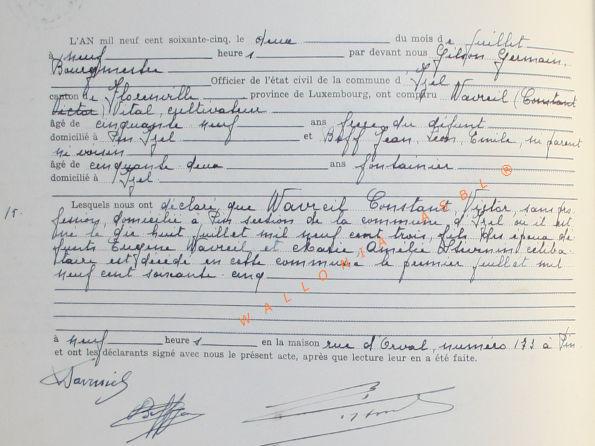 L'AN mil neuf cent soixante-cinq, le deux du mois de juillet
à neuf heures par devant nous Gilson Germain,
Bourgmestre Officier de l'état civil de la commune d'Izel
canton de Florenville province de Luxembourg, ont comparu Wavreil (Constant
Victor) Vital, cultivateur
âgé de cinquante neuf ans frère du défunt
domicilié à Pin Izel et Jean Léon Emile, ni parent
ni voisin
âgé de cinquante deux ans fontainier
domicilié à Izel
15.
Lesquels nous ont déclaré que Wavreil Constant, Victor, sans pro
fession, domicilié à Pin section de la commune d'Izel où il est
né le dix huit juillet mil neuf cent trois, fils des époux dé
funts Eugène Wavreil et Marie Amélie céliba
taire est décédé en cette commune le premier juillet mil
neuf cent soixante cinq
à neuf heures en la maison rue d'Orval, numéro 173 à Pin.
et ont les déclarants signé avec nous le présent acte, après que lecture leur en a été faite.
WALLONIA ASBL ®